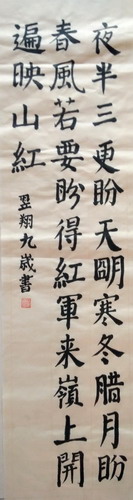 夜半三更盼天明寒冬腊月盼
春風若要盼得紅軍来嶺上開
遍映山紅
翌翔九歲書